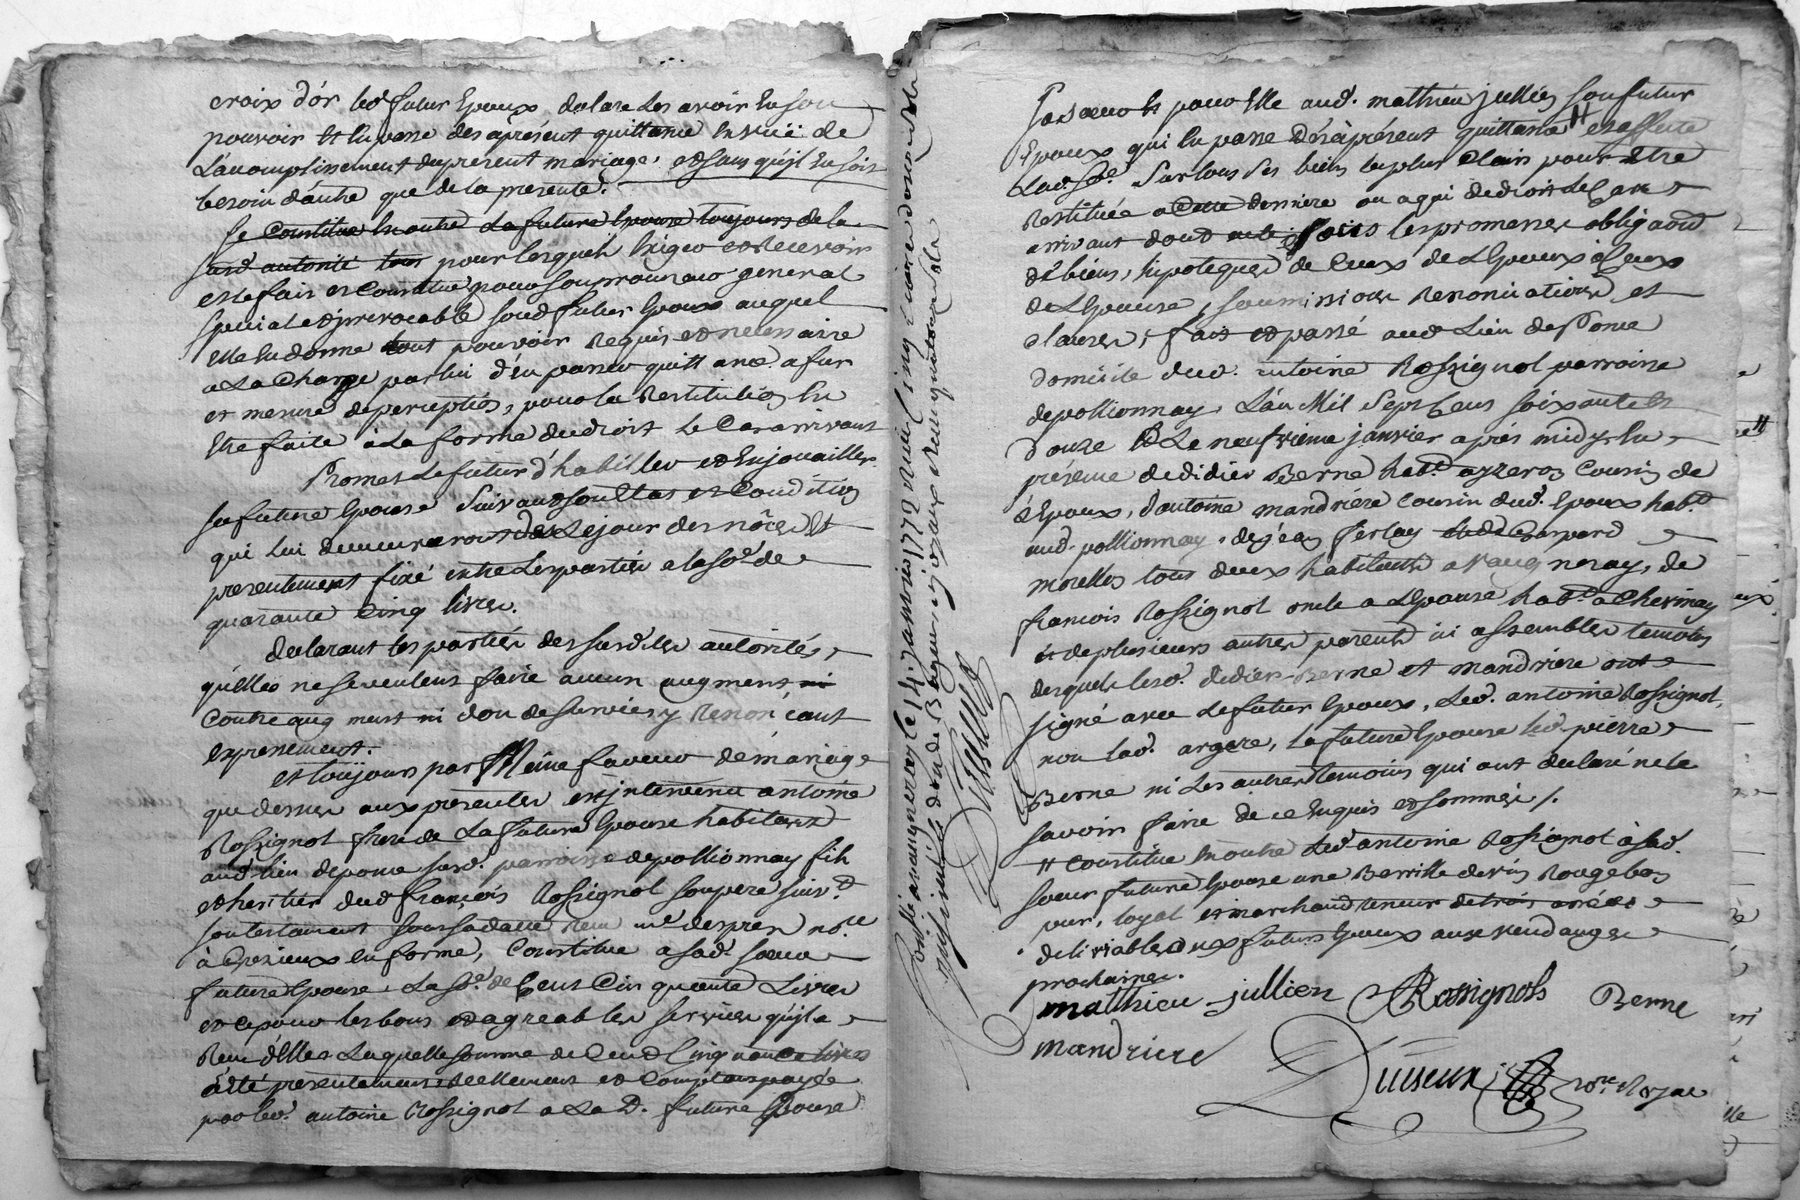 croix d'ór led. futur Epoux declare les avoir En son
pouvoir Et En passe des aprésent quittance En vuë de
L'accomplissement du present mariage, et sans qu'jl En soit
besoin d'autre que de la presente.
Se Constitue En outre La future Epouse toujours de la
susd. autorité tous pour lesquels Exiger et Recevoir
este fait et Constitué pour son procureur general
special et jrrevocable sond futur Epoux auquel
Elle En donne tout pouvoir Requis et necessaire
a La Charge par lui d'En passer quittance a fur
et mesure de perception, pour la Restitution En
Etre faite à La forme du droit Le Cas arrivant
Promet Le futur d'habiller et Enjouailler
sa future Epouse suivant son Etat et Condition
qui lui demeureront Le jour des nôces Et
presentement fixé entre Les parties a la so.e de
quarante Cinq livres.
Declarant les parties dessusd.tes autorités,
qu'Elles ne se veulent faire aucun augment ni
Contre augment ni don de survie, y Renonçant
expressement.
et toujours par Même faveur de mariage
que dessus aux presentes est jntervenu antoine
Rossignol frere de La future Epouse habitant
aud. lieu de pome susd. parroisse de pollionnay fils
et heritier dud françois Rossignol son pere suiv.t
son testament sous sa datte Reçu me despres no.re
à Grezieux en forme, Constitue a sad. sœur
future Epouse, La so.e de Cent Cinquante Livres
et ce pour les bons et agreables services qu'jl a
Reçu d'Elle Laquelle somme de Cent Cinquante livres
à été presentement Reellement et Comptant payée
par led. antoine Rossignol a La d. future Epouse
Controllé a vaugneray le 14. janvier 1772
Duiseux
Et pour Elle aud. mathieu jullien son futur
Epoux qui En passe Dés àprésent quittance # et affecte
Lad. so.e Sur tous Ses biens les plus Clairs pour Etre
Restituée a Cette derniere ou a qui de droit Le Cas
arrivant dont acte sous les promesses oblig.aons
de biens, hipoteques de Ceux de L'Epoux à Ceux
de L'Epouse, soumissions Renonciations et
clauses, fait et passé aud Lieu de Pome
domicile dud. antoine Rossignol parroisse
de pollionnay, L'an Mil Sept Cens soixante Et
Douze Et Le neufvieme janvier aprés midy En
présence de didier Berne hab.t a yzeron Cousin de
L'Epoux, d'antoine mandriere Cousin dud. Epoux hab.t
aud. pollionnay, de jéan ferlay et de Gaspard
morellon tous deux habitants a Vaugneray, de
francois Rossignol oncle a L'Epouse hab.t a Chevinay
et de plusieurs autres parents ici assemblés temoins
desquels lesd. didier Berne et mandriere ont
signé avec Le futur Epoux, Led. antoine Rossignol,
non lad. argere, La future Epouse led. pierre
Berne ni Les autres Temoins qui ont declaré ne le
savoir faire de ce Enquis et sommés /.
# Constitue En outre Led antoine Rossignol à sad.
soeur future Epouse une Benille de vin Rouge bon
pur, loyal et marchand teneur de trois anées
delivrable aux futurs Epoux aux vendanges
prochaines.
mathieu jullien Rossignols Berne
mandriere
Duiseux no.re Royal